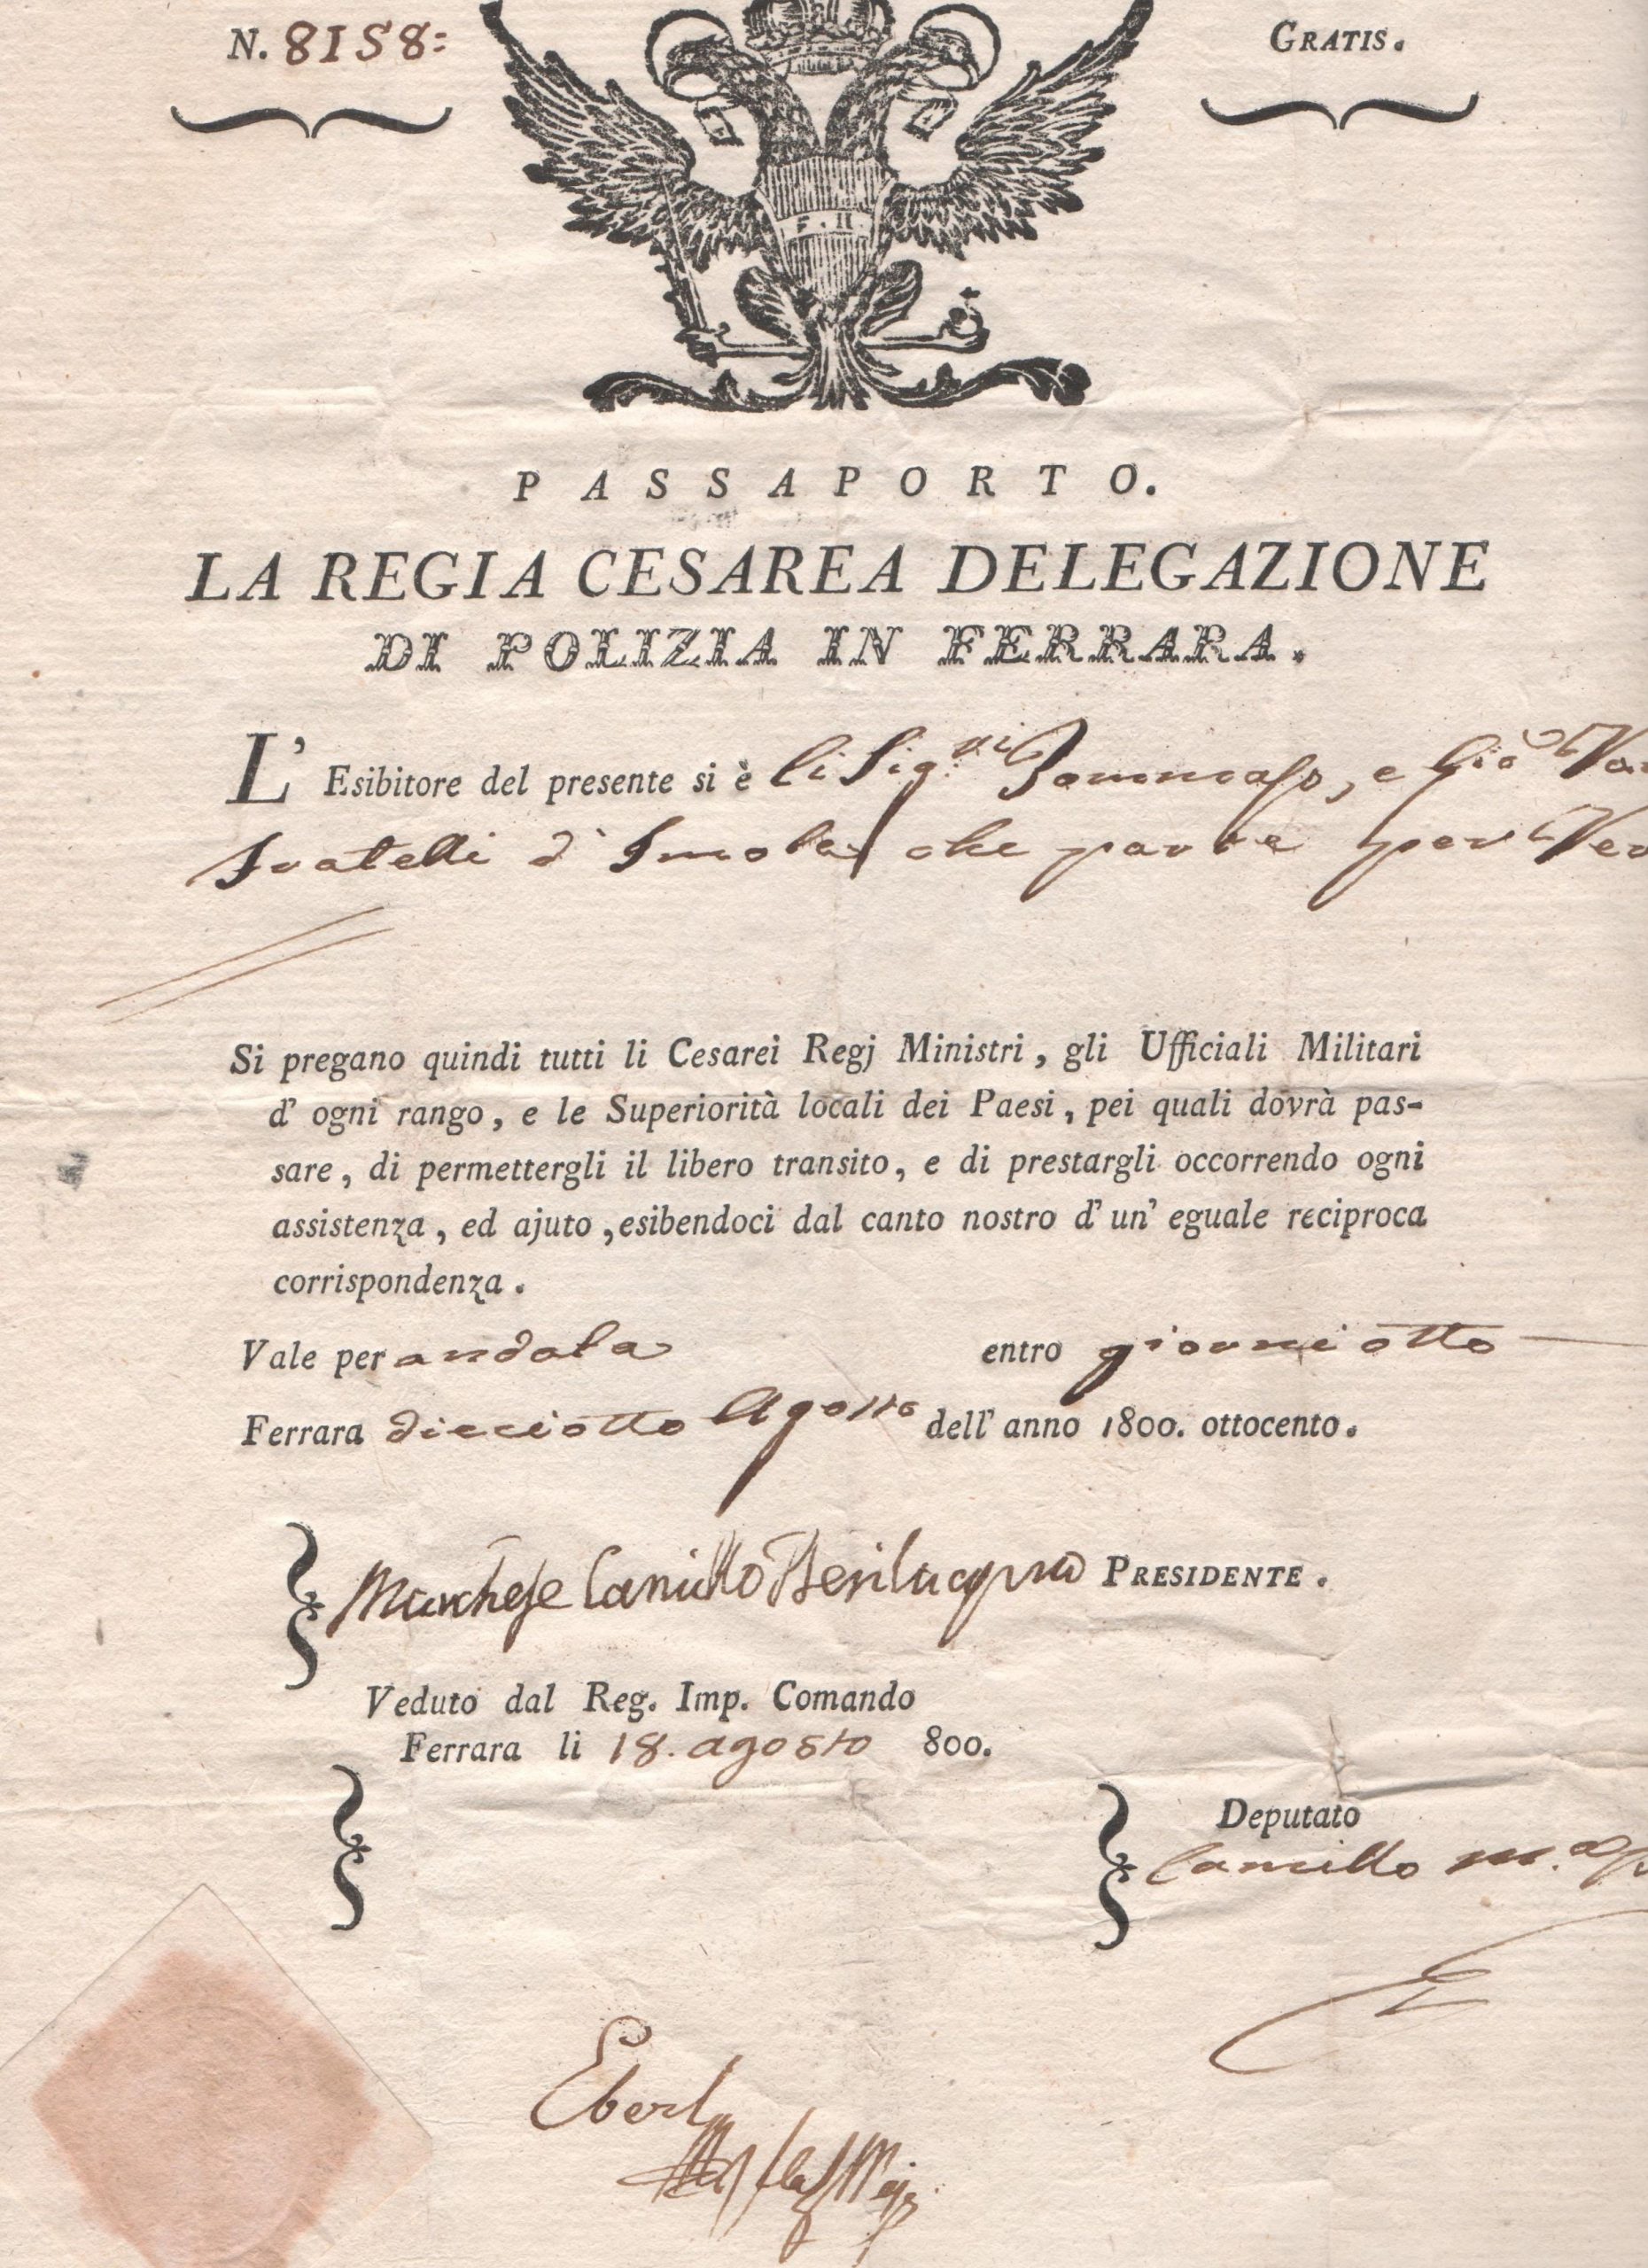 N. 8158:
GRATIS.
F. II
PASSAPORTO.
LA REGIA CESAREA DELEGAZIONE
DI POLIZIA IN FERRARA.
L' Esibitore del presente si è li Sig.ri Tommaso, e Gio
Fratelli d'Imola che parte per
Si pregano quindi tutti li Cesarei Regj Ministri, gli Ufficiali Militari
d' ogni rango, e le Superiorità locali dei Paesi, pei quali dovrà pas-
sare, di permettergli il libero transito, e di prestargli occorrendo ogni
assistenza, ed ajuto, esibendoci dal canto nostro d' un' eguale reciproca
corrispondenza.
Vale per andata entro giorni otto
Ferrara dieciotto Agosto dell' anno 1800. ottocento.
Marchese Camillo Bevilacqua PRESIDENTE.
Veduto dal Reg. Imp. Comando
Ferrara li 18. agosto 800.
Deputato
Camillo
Eberl